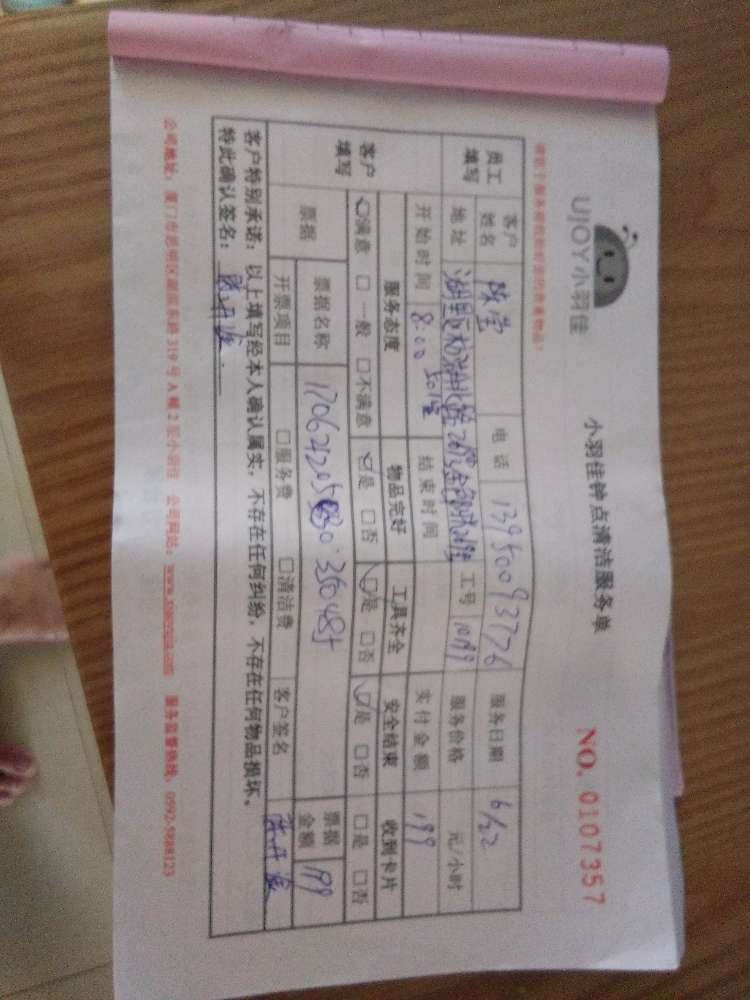 UJOY小羽佳
小羽佳钟点清洁服务单
NO. 0107357
员工填写 客户姓名 陈莹 电话 13950093776 服务日期 6/22
地址 工号 10199 服务价格 元/小时
开始时间 8:00 结束时间 实付金额 199
客户填写 服务态度 物品完好 工具齐全 安全结束 收到卡片
☑满意 □一般 □不满意 ☑是 □否 ☑是 □否 ☑是 □否 □是 □否
票据 票据名称 票据金额 199
开票项目 □服务费 □清洁费 客户签名
客户特别承诺：以上填写经本人确认属实，不存在任何纠纷，不存在任何物品损坏。
特此确认签名：
公司地址：厦门市思明区湖滨东路319号A幢2层小羽佳 公司网站：www.xiaoyujia.com 服务监督热线：0592-5888123